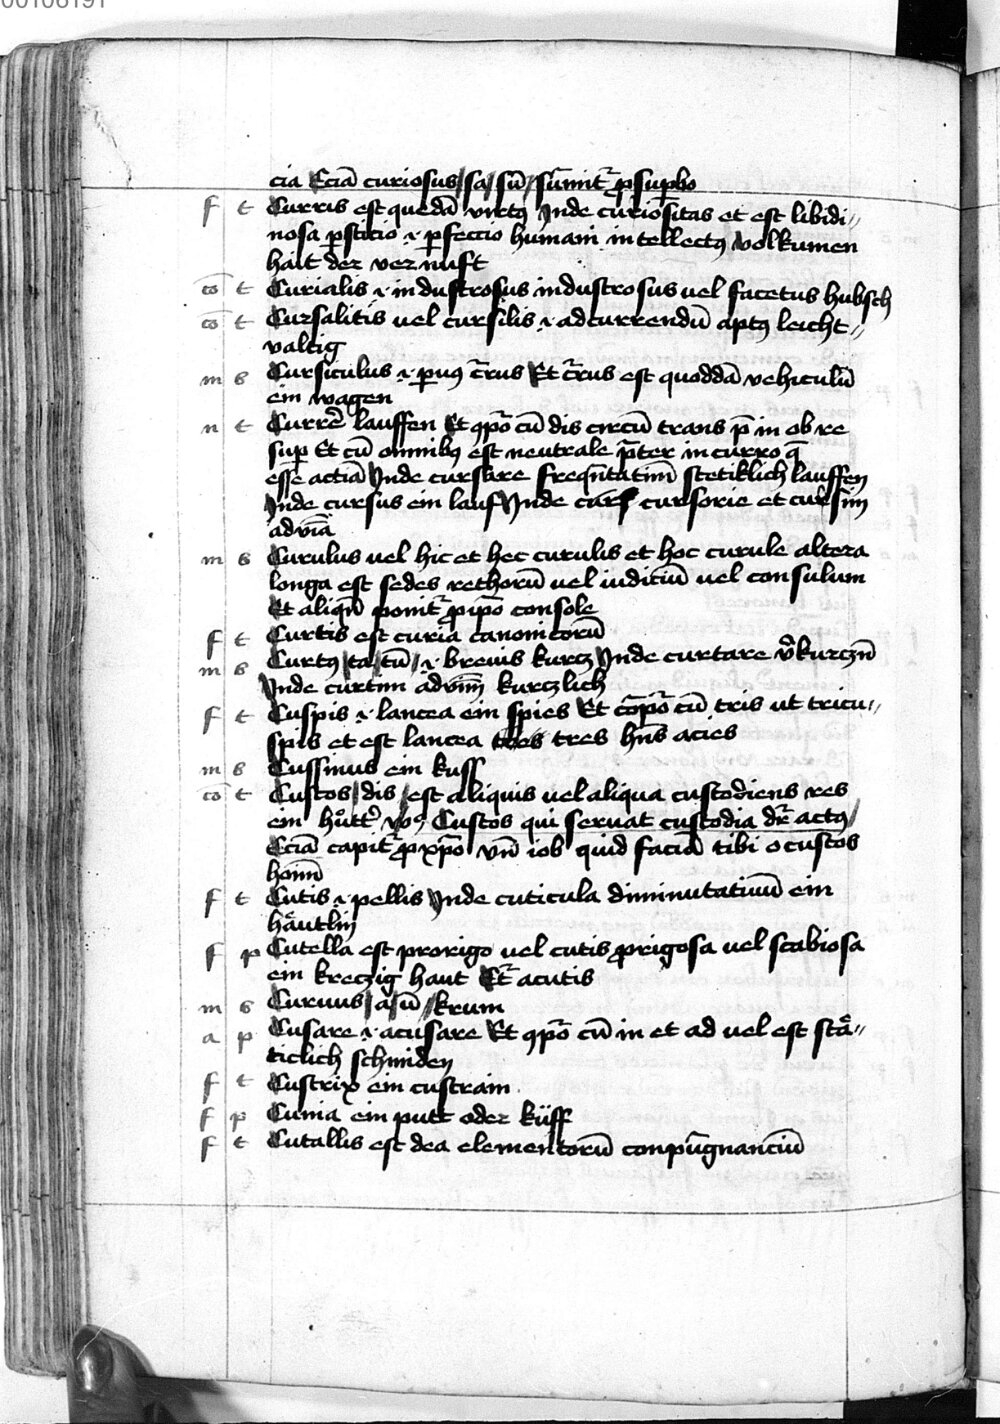 00106191
cia Eciā curiosus / sa / sū / sūmit᷑ ꝓ supbo
f t Curris est quedā virtꝰ Inde curiositas et est libidi„
nosa ꝑstitio ⁊ ꝑfeccio humani intellectꝰ volkumen
hait der vernuft
cō t Curialis ⁊ industrosus industrosus uel facetus hubsch
cō t Cursalitis uel cursilis ⁊ ad currendū aptꝰ leicht„
valtig
m s Cursiculus ⁊ ꝑuꝰ c̄rus Et c̄rus est quoddā vehiculū
ein wagen
n t Currē lauffen Et ꝯpōo cū dis circū trans p̄ in ob re
sup Et cū omnibꝰ est neutrale p̄ter incurro q̄
esse actiā Inde cursare freqn̄tatiūū stetiklich lauffen
Inde cursus ein lauf Inde curs cursorie et cursim
aduīā
m s Curulus uel hic et hec curulis et hoc curule altera
longa est sedes rethorū uel iuditiū uel consulum
Et aliqn̄ ponit᷑ ꝓ ipō console
f t Curtis est curia canonicorū
m s Curtꝰ / ta / tū / ⁊ breuis kurcz Inde curtare v̄kurczn̄
Inde curtim aduīm̄ kurczlich
f t Cuspis ⁊ lancea ein spies Et cōpōo cū tris ut tricu„
spis et est lancea tres tres hn̄s acies
m s Cussinus ein kuss
cō t Custos / dis / est aliquis uel aliqua custodiens res
ein hůtt᷑ Custos qui seruat custodia dr̄ actꝰ /
Eciā capit᷑ ꝓ xp̄o vn̄ iob quid faciā tibi o custos
hoīm
f t Cutis ⁊ pellis Inde cuticula diminutatiuū ein
häutlin
f p Cutella est prorigo uel cutis prigosa uel scabiosa
ein kreczig haut Et᷑ acutis
m s Curuus / a / ū / krum
a p Cusare ⁊ acusare Et ꝯpōo cū in et ad uel est stä„
ticlich schmiden
f t Custrix ein custrain
f p Cunia ein putt oder küff
f t Cutallis est dea elementorū conpūgnanciū